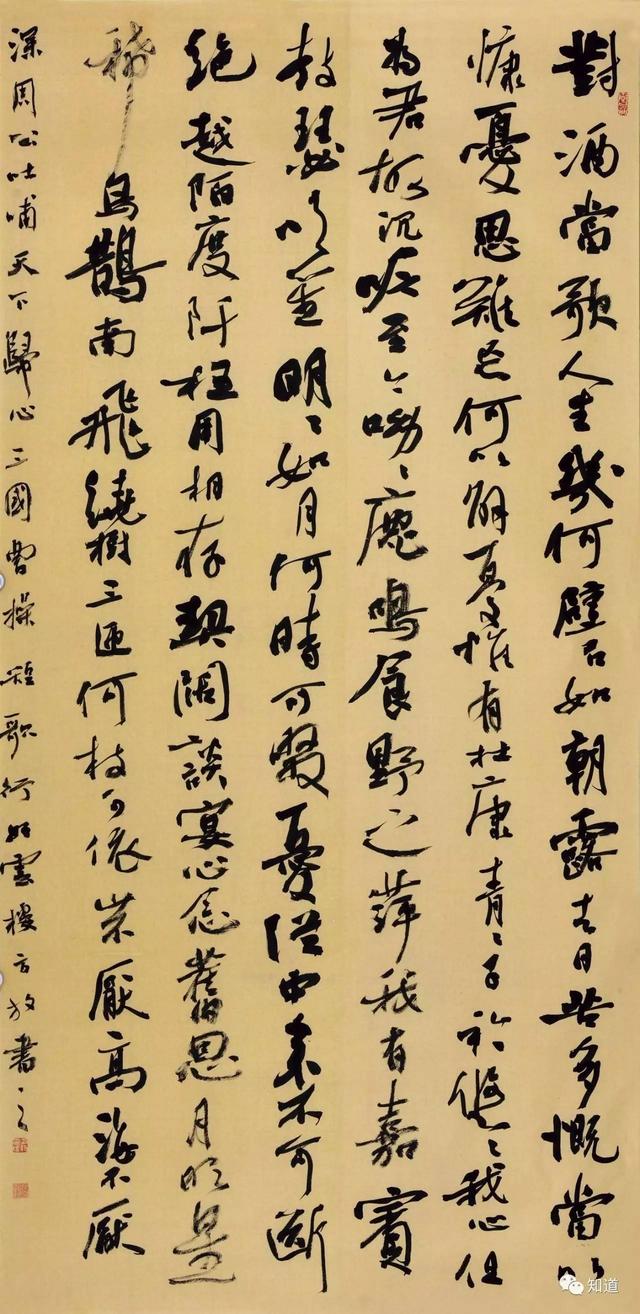 對酒當歌人生幾何譬如朝露去日苦多慨當以
慷憂思難忘何以解憂惟有杜康青〻子衿悠〻我心但
為君故沉吟至今呦〻鹿鳴食野之萍我有嘉賓
鼓瑟吹笙明〻如月何時可掇憂從中來不可斷
絕越陌度阡枉用相存契闊談宴心念舊恩月明星
稀烏鵲南飛繞樹三匝何枝可依山不厭高海不厭
深周公吐哺天下歸心三國曹操短歌行雲樓方放書
知道